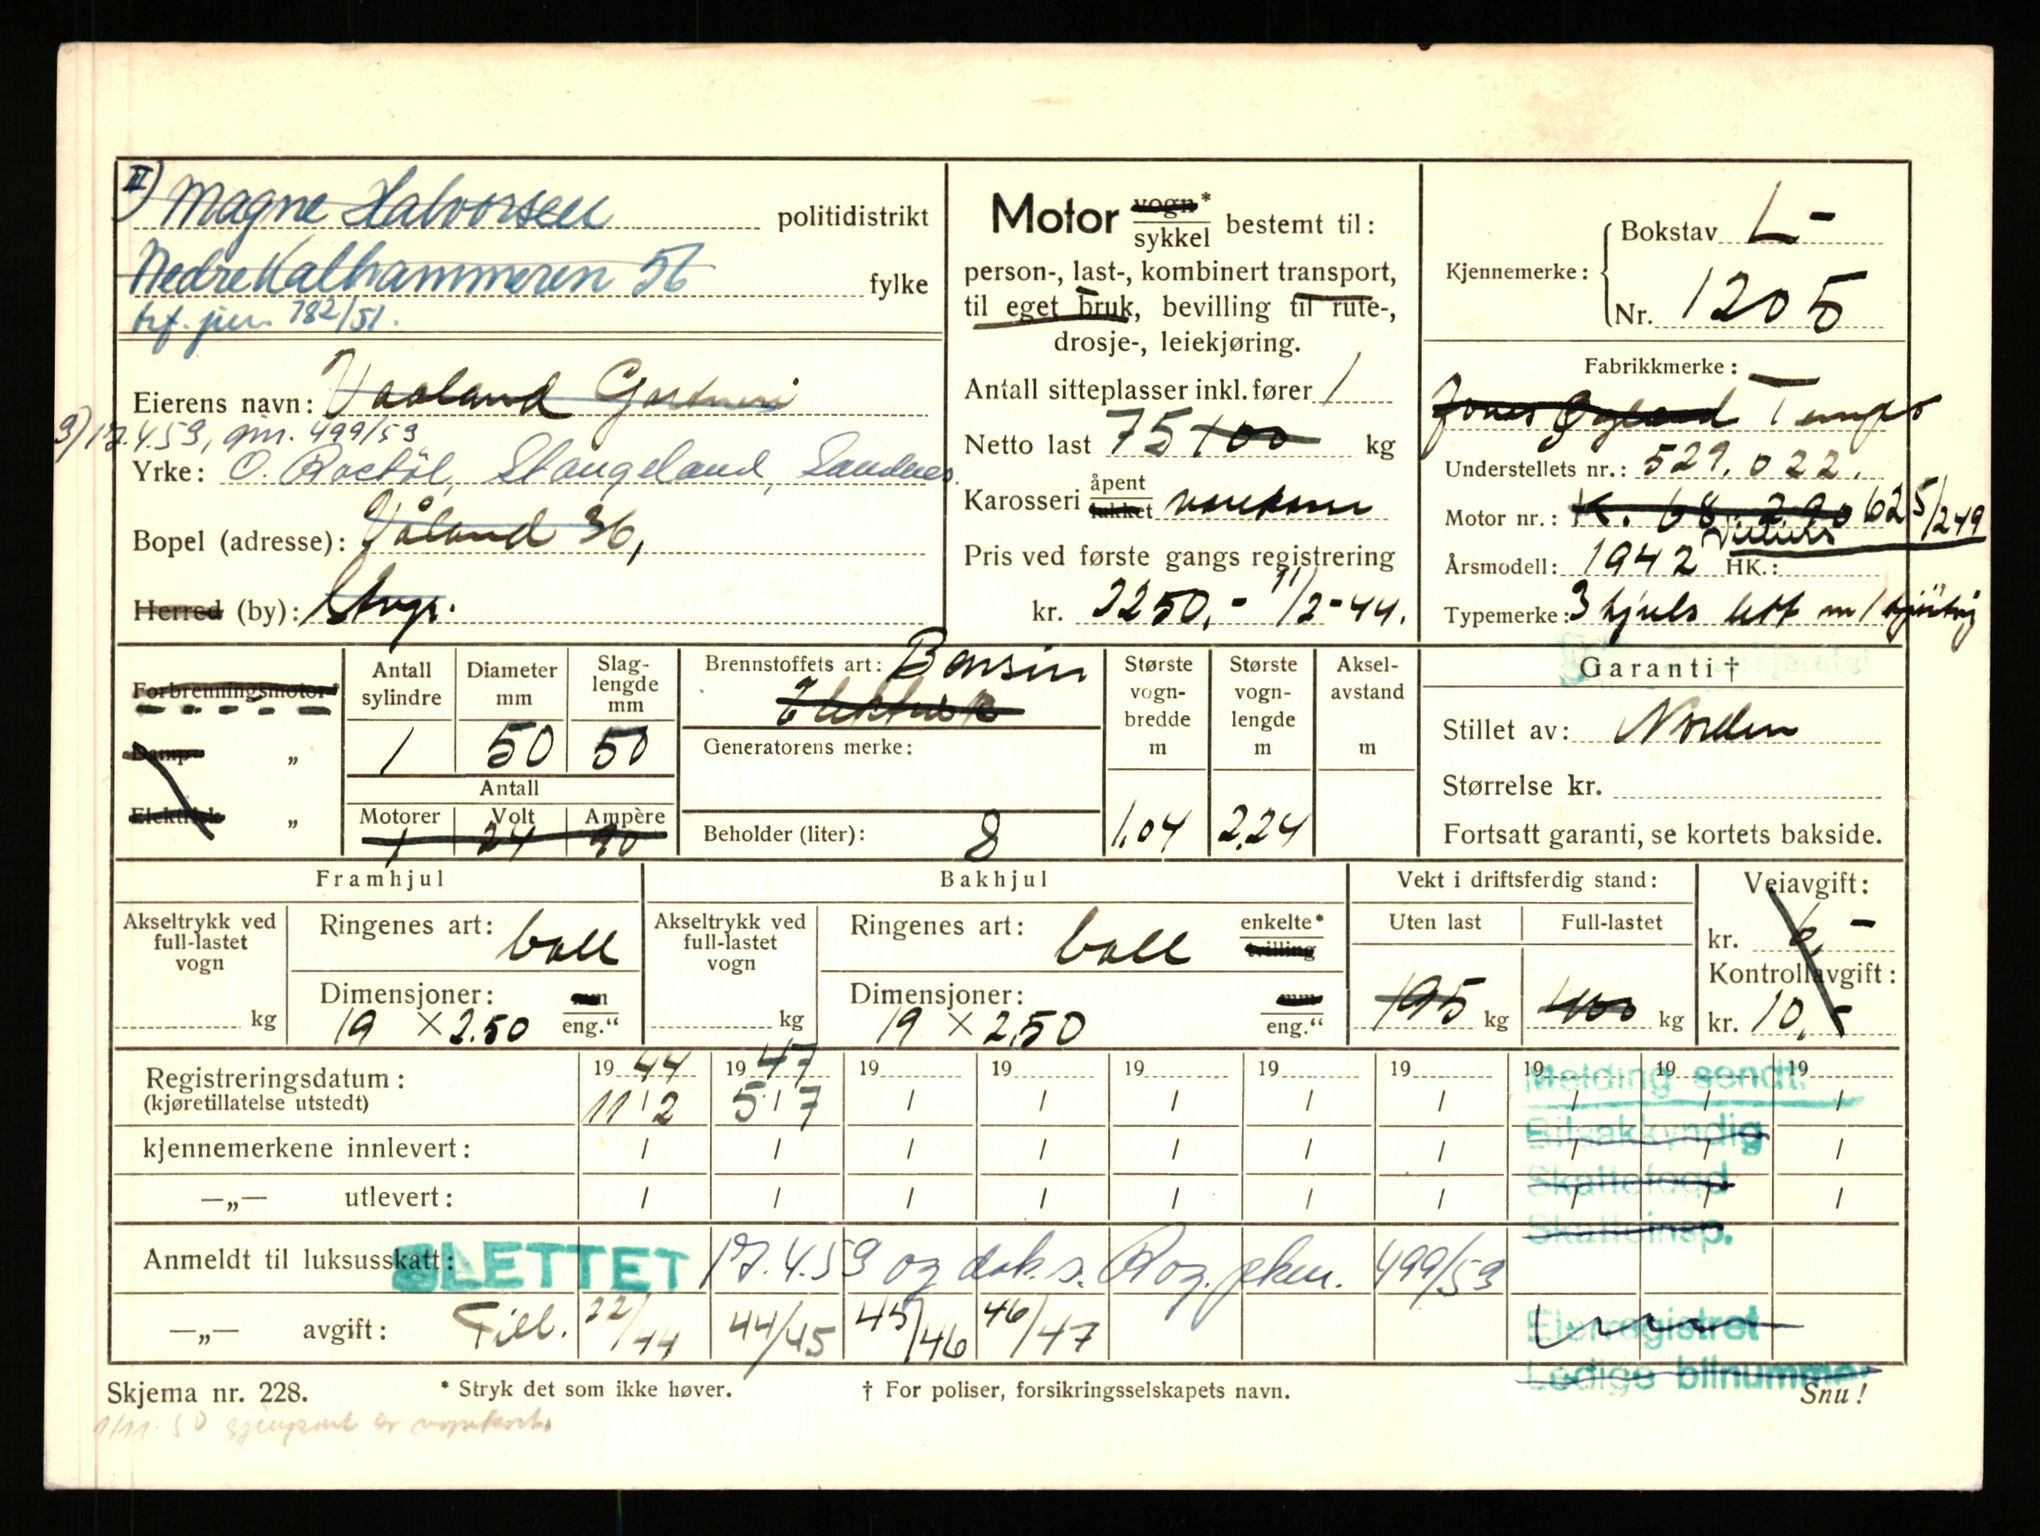 II) Magne Halvorsen politidistrikt
Nedre Kalhammeren 56 fylke
782/51.
Eierens navn: Vaaland Gartneri
3) 17.4.59, 499/59
Yrke: O. Rostøl, Stangeland, Sandnes.
Bopel (adresse): Våland 36,
Herred (by): Stvgr.
Motor vogn* sykkel bestemt til:
person-, last-, kombinert transport,
til eget bruk, bevilling til rute-,
drosje-, leiekjøring.
Antall sitteplasser inkl. fører 1
Netto last 75 100 kg
Karosseri åpent lukket varekasse
Pris ved første gangs registrering
kr. 2250.- 11/2-44.
Kjennemerke: Bokstav L-
Nr. 1205
Fabrikkmerke:
Jonas Øgland Tempo
Understellets nr.: 529.022.
Motor nr.: K. 68.290 625/249
Villiers
Årsmodell: 1942 HK.:
Typemerke: 3 hjuls lett m/
Forbrenningsmotor*
Damp- „
Elektrisk „
Antall sylindre Diameter mm Slag-lengde mm
1 50 50
Antall
Motorer Volt Ampère
1 24 90
Brennstoffets art: Bensin
Elektrisk
Generatorens merke:
Beholder (liter): 8
Største vogn-bredde m Største vogn-lengde m Aksel-avstand m
1,04 2,24
Garanti †
Stillet av: Norden
Størrelse kr.
Fortsatt garanti, se kortets bakside.
Framhjul
Akseltrykk ved full-lastet vogn kg
Ringenes art: ball
Dimensjoner: mm
19 × 2.50 eng.“
Bakhjul
Akseltrykk ved full-lastet vogn kg
Ringenes art: ball enkelte* tvilling
Dimensjoner: mm
19 × 2.50 eng.“
Vekt i driftsferdig stand:
Uten last Full-lastet
195 kg 400 kg
Veiavgift:
kr. 6,-
Kontrollavgift:
kr. 10,-
Registreringsdatum: 1944 1947 19 19 19 19 19 19 19 19
(kjøretillatelse utstedt) 11/2 5/7 / / / / / / / /
Melding sendt:
kjennemerkene innlevert: / / / / / / / / / /
Bilsakkyndig
—„— utlevert: / / / / / / / / / /
Skattefogd
Skatteinsp.
Anmeldt til luksusskatt: SLETTET 17.4.59 og dok.s. Rog. 499/59
—„— avgift: 22/44 44/45 45/46 46/47
Eierregistret
Ledige bilnummer
Skjema nr. 228. * Stryk det som ikke høver. † For poliser, forsikringsselskapets navn. Snu!
1/11-50 gjenpart av vognkort